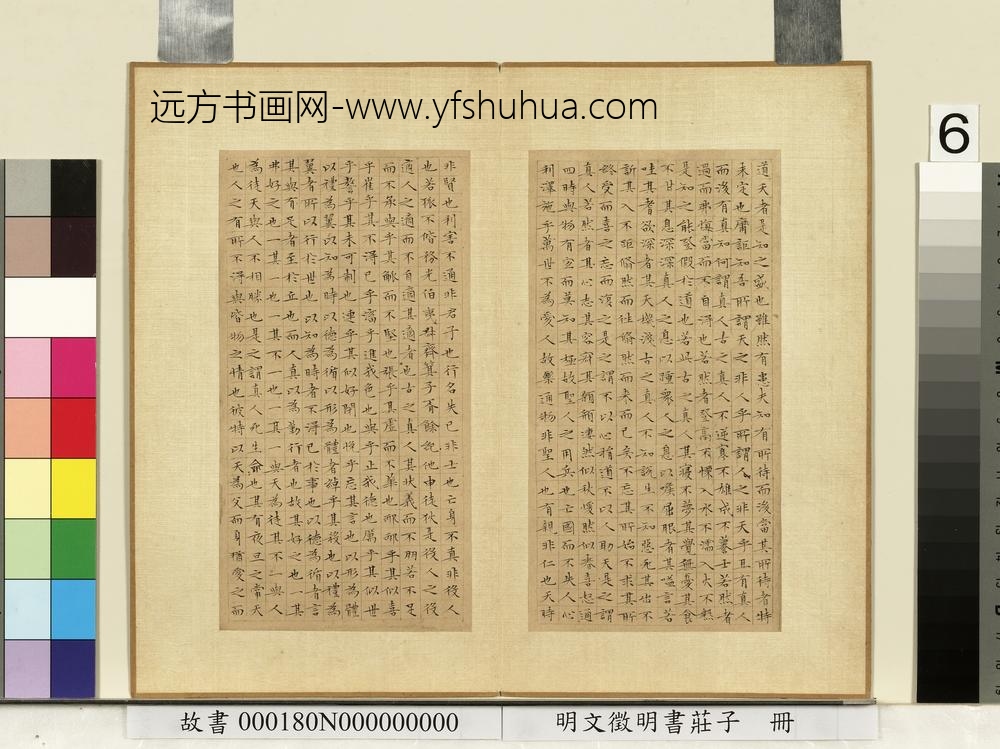 远方书画网-www.yfshuhua.com
6
道夭者是知之盛也雖然有患夫知有所待而後當其所待者特
未定也庸詎知吾所謂天之非人乎所謂人之非天乎且有真人
而後有真知何謂真人古之真人不逆寡不雄成不謩士若然者
過而弗悔當而不自得也若然者登高不慄入水不濡入火不熱
是知之能登假於道也若此古之真人其寢不夢其覺無憂其食
不甘其息深深真人之息以踵衆人之息以喉屈服者其嗌言若
哇其耆欲深者其天機淺古之真人不知說生不知惡死其出不
訢其入不距翛然而往翛然而來而已矣不忘其所始不求其所
終受而喜之忘而復之是之謂不以心揖道不以人助天是之謂
真人若然者其心志其容寂其顙頯凄然似秋煖然似春喜怒通
四時與物有宜而莫知其極故聖人之用兵也亡國而不失人心
利澤施乎萬世不為愛人故樂通物非聖人也有親非仁也天時
非賢也利害不通非君子也行名失己非士也亡身不真非役人
也若狐不偕務光伯夷叔齊箕子胥餘紀他申徒狄是役人之役
適人之適而不自適其適者也古之真人其狀義而不朋若不足
而不承與乎其觚而不堅也張乎其虛而不華也邴邴乎其似喜
乎崔乎其不得已乎滀乎進我色也與乎止我德也厲乎其似世
乎謷乎其未可制也連乎其似好閉也悗乎忘其言也以形為體
以禮為翼以知為時以德為循以形為體者綽乎其殺也以禮為
翼者所以行於世也以知為時者不得已於事也以德為循者言
其與有足者至於丘也而人真以為勤行者也故其好之也一其
弗好之也一其一也一其不一也一其一與天為徒其不一與人
為徒天與人不相勝也是之謂真人死生命也其有夜旦之常天
也人之有所不得與皆物之情也彼特以天為父而身猶愛之而
故書 000180N000000000
明文徵明書莊子 冊